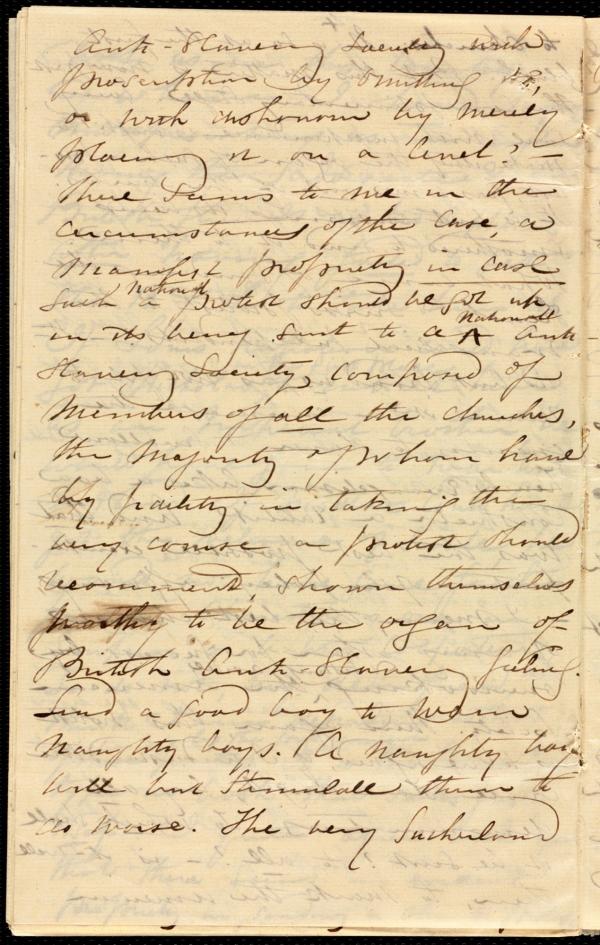 Anti-Slavery Society with
proscription by omitting it,
or with dishonour by merely
placing it on a level? —
There seems to me, in the
circumstances of the case, a
manifest propriety in case
such a National protest should be got up
in its being sent to a National Anti-
Slavery Society, composed of
members of all the churches,
the majority of whom have
by fidelity in taking the
very course a protest should
recommend, shown themselves
worthy to be the organ of
British Anti-Slavery feeling.
Send a good boy to warn
naughty boys. A naughty boy
will but stimulate them to
do worse. The very Sutherland